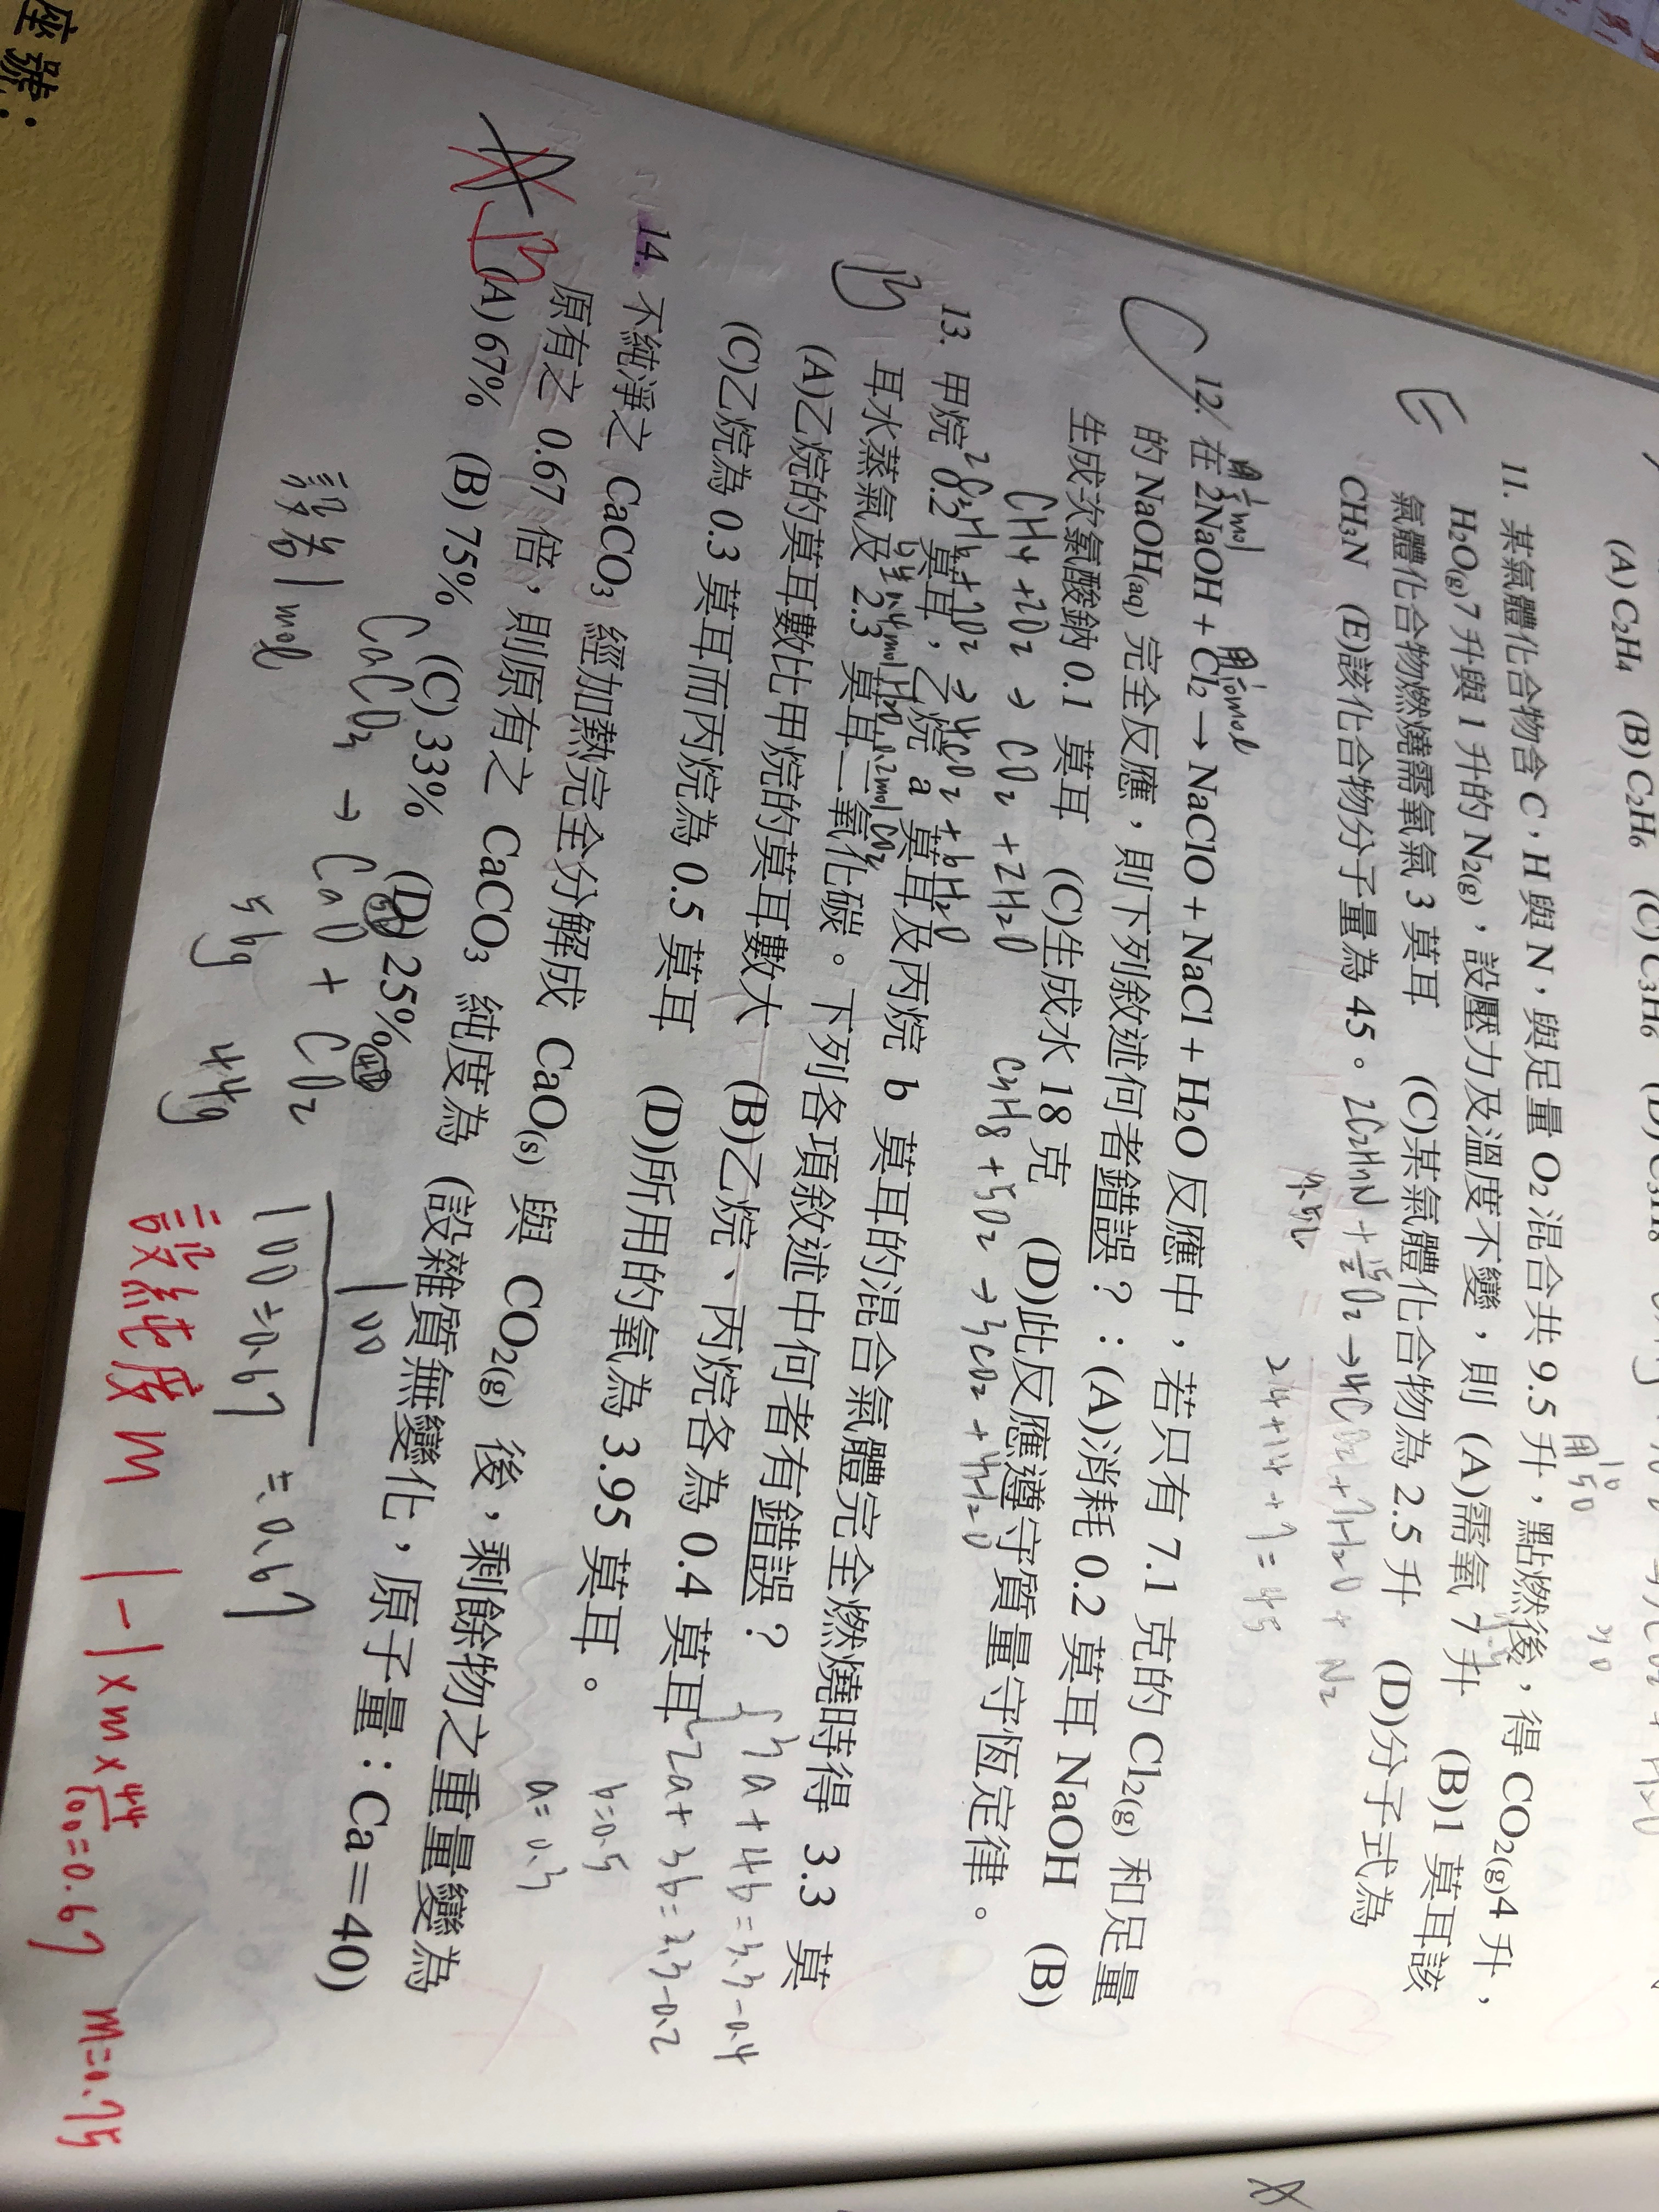 座號：
(A) C₂H₄ (B) C₂H₆ (C) C₃H₆ (D) C₃H₈
11. 某氣體化合物含 C，H 與 N，與足量 O₂ 混合共 9.5 升，點燃後，得 CO₂(g)4 升，
H₂O(g)7 升與 1 升的 N₂(g)，設壓力及溫度不變，則 (A)需氧 7 升 (B)1 莫耳該
氣體化合物燃燒需氧氣 3 莫耳 (C)某氣體化合物為 2.5 升 (D)分子式為
CH₃N (E)該化合物分子量為 45。
E
24+14+7=45
12. 在 2NaOH + Cl₂ → NaClO + NaCl + H₂O 反應中，若只有 7.1 克的 Cl₂(g) 和足量
的 NaOH(aq) 完全反應，則下列敘述何者錯誤？：(A)消耗 0.2 莫耳 NaOH (B)
生成次氯酸鈉 0.1 莫耳 (C)生成水 18 克 (D)此反應遵守質量守恆定律。
C
CH₄ + 2O₂ → CO₂ + 2H₂O
C₃H₈ + 5O₂ → 3CO₂ + 4H₂O
13. 甲烷 0.2 莫耳，乙烷 a 莫耳及丙烷 b 莫耳的混合氣體完全燃燒時得 3.3 莫
耳水蒸氣及 2.3 莫耳二氧化碳。下列各項敘述中何者有錯誤？
(A)乙烷的莫耳數比甲烷的莫耳數大 (B)乙烷、丙烷各為 0.4 莫耳
(C)乙烷為 0.3 莫耳而丙烷為 0.5 莫耳 (D)所用的氧為 3.95 莫耳。
B
3a+4b=3.3-0.4
2a+3b=2.3-0.2
b=0.5
a=0.3
14. 不純淨之 CaCO₃ 經加熱完全分解成 CaO(s) 與 CO₂(g) 後，剩餘物之重量變為
原有之 0.67 倍，則原有之 CaCO₃ 純度為 (設雜質無變化，原子量：Ca＝40)
(A) 67% (B) 75% (C) 33% (D) 25%
A B
CaCO₃ → CaO + CO₂
設有 1 mol
56g 44g
100
100=0.67
=0.67
設純度 m 1-1×m×44/100=0.67 m=0.75